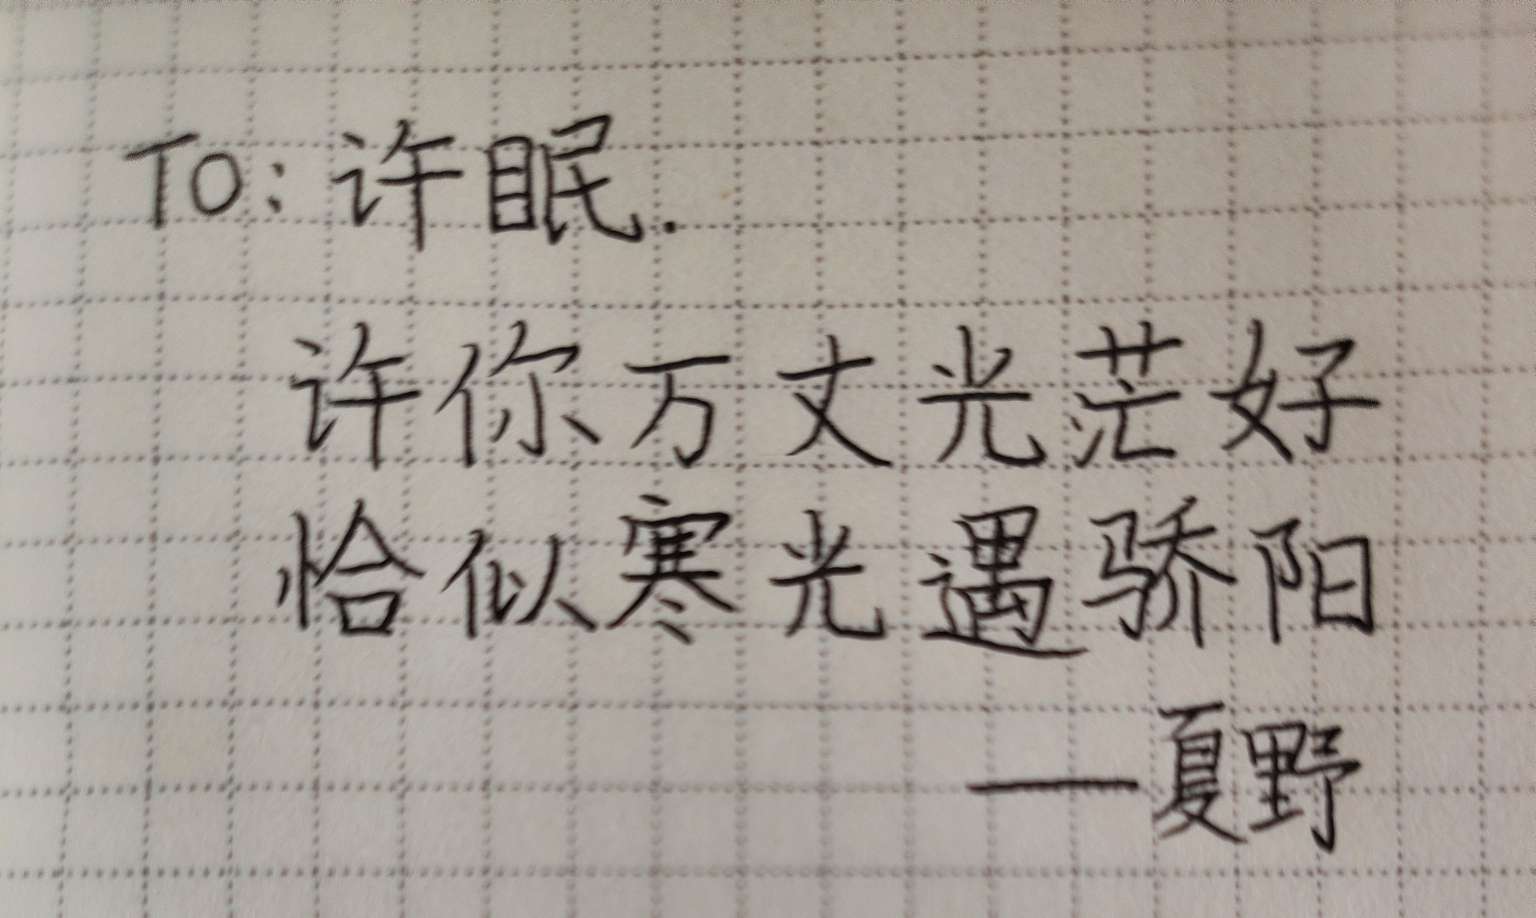 TO: 许眠.
许你万丈光茫好
恰似寒光遇骄阳
—夏野